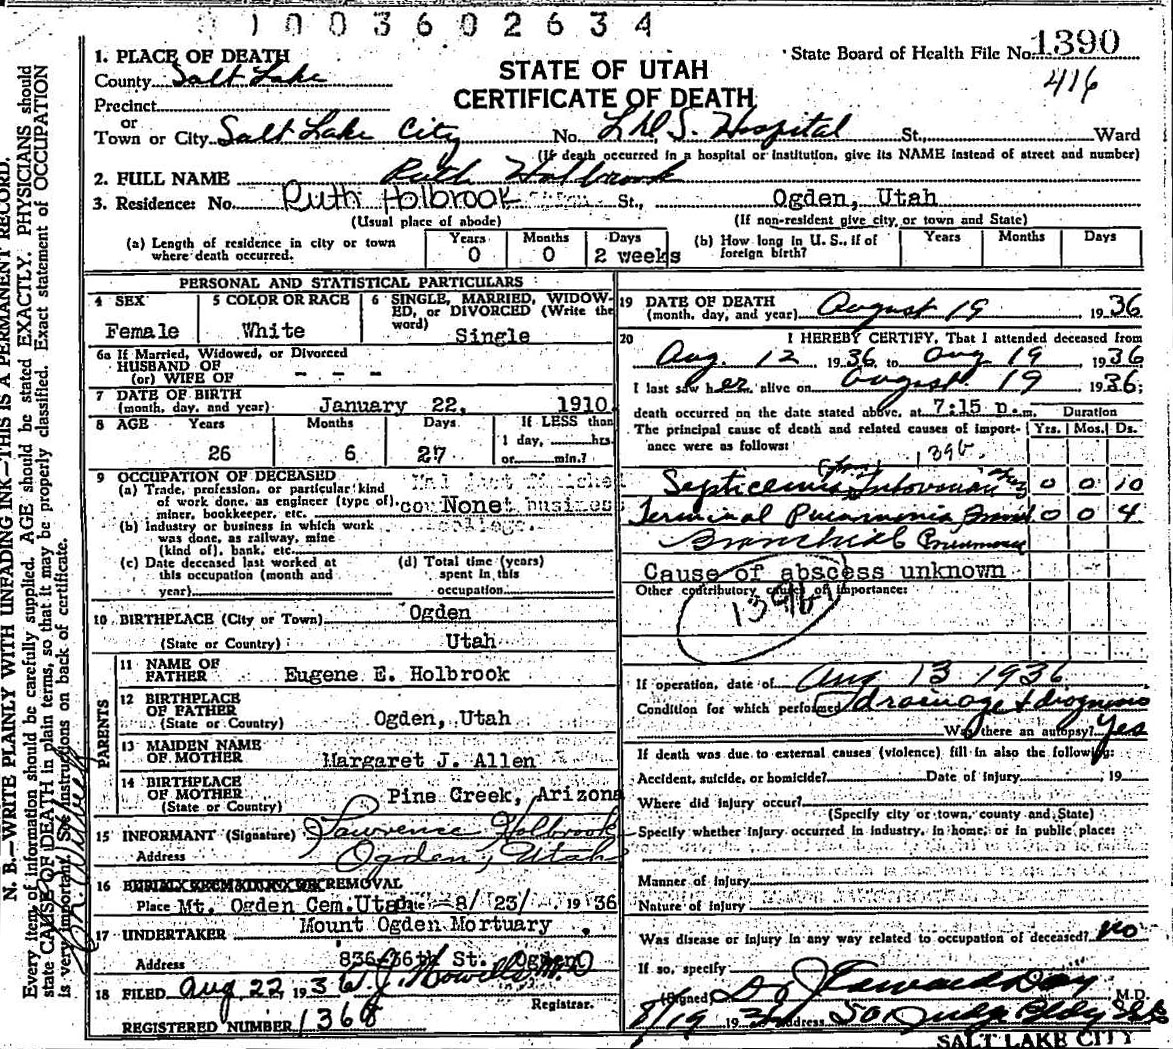 0 1 0 0 3 6 0 2 6 3 4
State Board of Health File No. 1390
416
STATE OF UTAH
CERTIFICATE OF DEATH
1. PLACE OF DEATH
County Salt Lake
Precinct
or
Town or City Salt Lake City No. L.D.S. Hospital St., Ward
(If death occurred in a hospital or institution, give its NAME instead of street and number)
2. FULL NAME Ruth Holbrook
3. Residence: No. Ruth Holbrook St., Ogden, Utah
(Usual place of abode) (If non-resident give city or town and State)
(a) Length of residence in city or town where death occurred. Years 0 Months 0 Days 2 weeks
(b) How long in U. S., if of foreign birth? Years Months Days
PERSONAL AND STATISTICAL PARTICULARS
4 SEX Female
5 COLOR OR RACE White
6 SINGLE, MARRIED, WIDOWED, or DIVORCED (Write the word) Single
6a If Married, Widowed, or Divorced
HUSBAND OF
(or) WIFE OF - - -
7 DATE OF BIRTH
(month, day, and year) January 22, 1910
8 AGE Years 26 Months 6 Days 27 If LESS than 1 day, hrs. or min.?
9 OCCUPATION OF DECEASED
(a) Trade, profession, or particular kind of work done, as engineer (type of), miner, bookkeeper, etc. None
(b) Industry or business in which work was done, as railway, mine (kind of), bank, etc. college
(c) Date deceased last worked at this occupation (month and year)
(d) Total time (years) spent in this occupation
10 BIRTHPLACE (City or Town) Ogden
(State or Country) Utah
PARENTS
11 NAME OF FATHER Eugene E. Holbrook
12 BIRTHPLACE OF FATHER (State or Country) Ogden, Utah
13 MAIDEN NAME OF MOTHER Margaret J. Allen
14 BIRTHPLACE OF MOTHER (State or Country) Pine Creek, Arizona
15 INFORMANT (Signature) J Lawrence Holbrook
Address Ogden, Utah
16 REMOVAL
Place Mt. Ogden Cem. Utah Date 8/ 23/ 1936
17 UNDERTAKER Mount Ogden Mortuary
Address 836-36th St. Ogden
18 FILED Aug 22, 1936 W. J. Howells M.D. Registrar.
REGISTERED NUMBER 1368
19 DATE OF DEATH
(month, day, and year) August 19 1936
20 I HEREBY CERTIFY, That I attended deceased from
Aug. 12 1936 to Aug 19 1936
I last saw her alive on August 19 1936;
death occurred on the date stated above, at 7:15 p.m.
Duration
The principal cause of death and related causes of importance were as follows: Yrs. Mos. Ds.
Septicemia 0 0 10
Terminal Pneumonia 0 0 4
Bronchial Pneumonia
Cause of abscess unknown
Other contributory causes of importance:
If operation, date of Aug 13 1936
Condition for which performed drainage & diagnosis
Was there an autopsy? Yes
If death was due to external causes (violence) fill in also the following:
Accident, suicide, or homicide? Date of injury 19
Where did injury occur?
(Specify city or town, county and State)
Specify whether injury occurred in industry, in home, or in public place:
Manner of injury
Nature of injury
Was disease or injury in any way related to occupation of deceased? No
If so, specify
(Signed) Dr J Edward Day M.D.
8/19 19 Address 501 Judge Bldg
SALT LAKE CITY
N. B.—WRITE PLAINLY WITH UNFADING INK—THIS IS A PERMANENT RECORD.
Every item of information should be carefully supplied. AGE should be stated EXACTLY. PHYSICIANS should
state CAUSE OF DEATH in plain terms, so that it may be properly classified. Exact statement of OCCUPATION
is very important. See instructions on back of certificate.